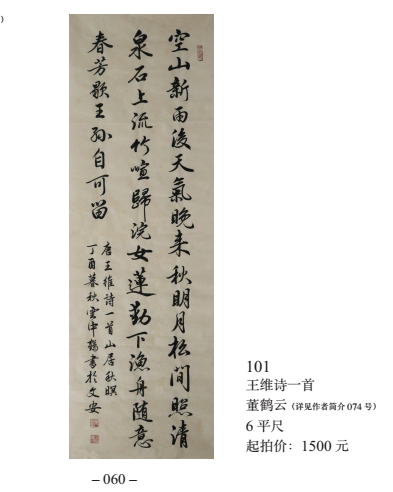 空山新雨後天氣晚来秋明月松間照清
泉石上流竹喧歸浣女蓮動下漁舟隨意
春芳歇王孫自可留
唐王維詩一首山居秋暝
丁酉暮秋雲中鶴書於文安
101
王维诗一首
董鹤云（详见作者简介 074 号）
6 平尺
起拍价：1500 元
– 060 –